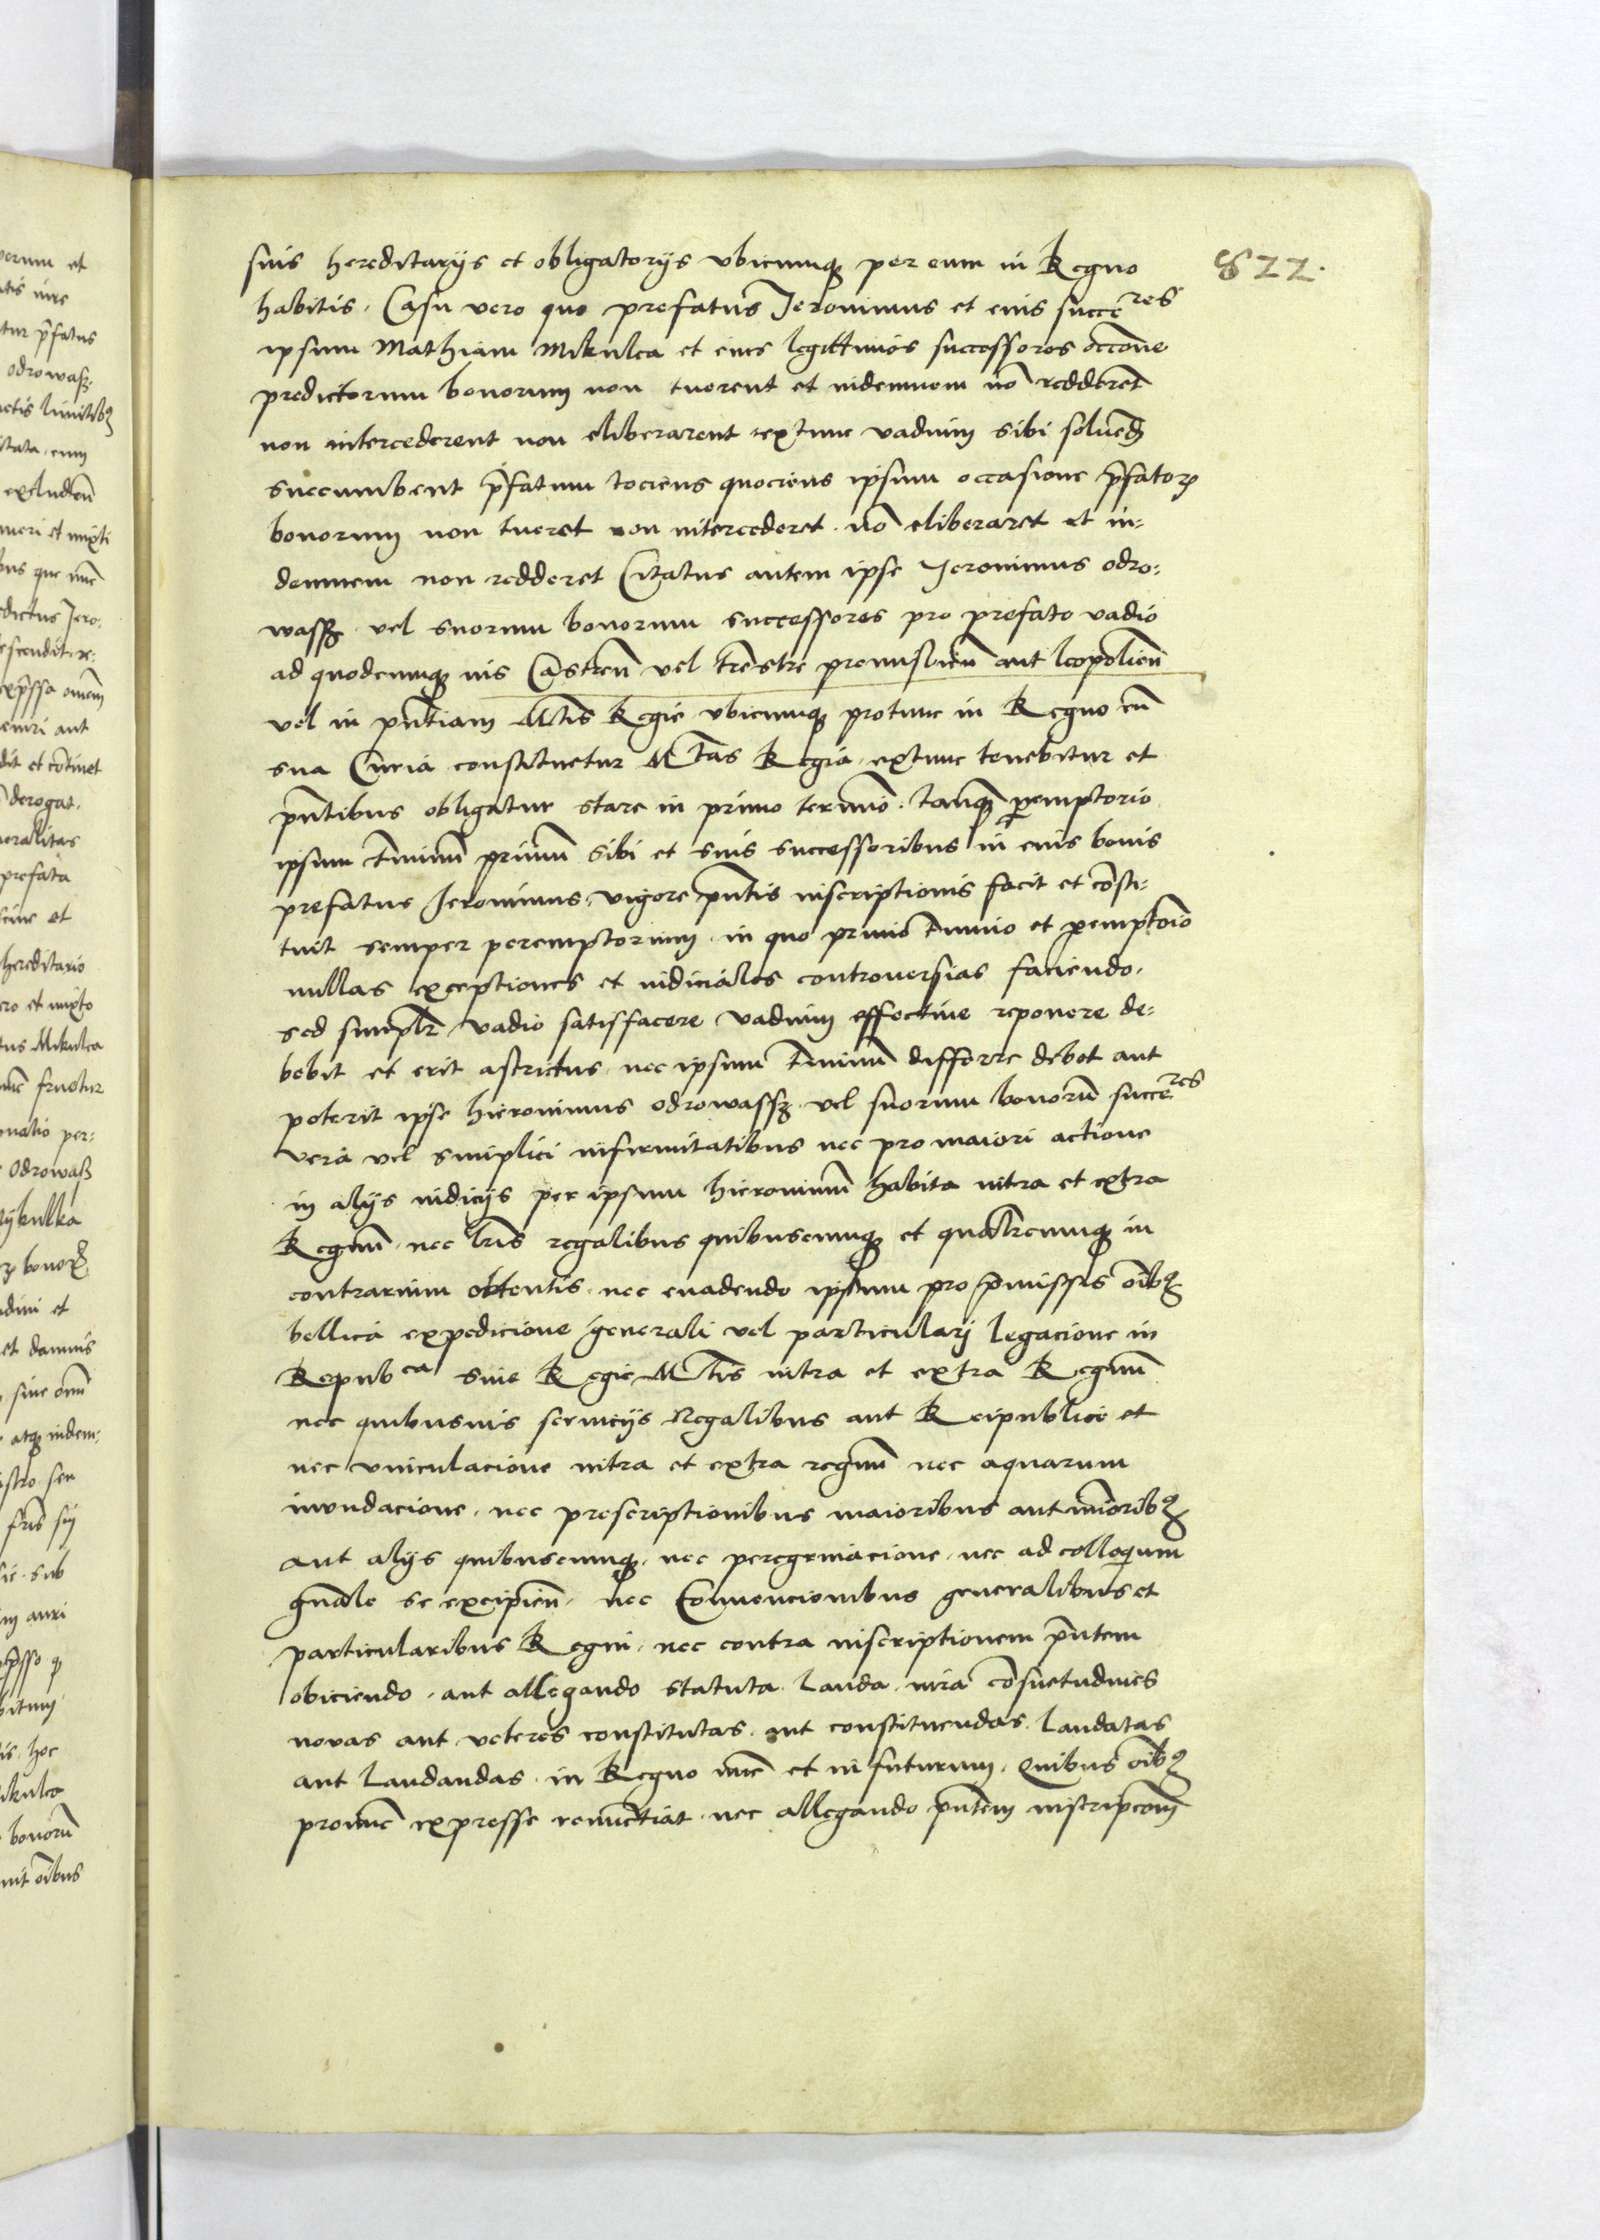 822.
suis hereditarijs et obligatorijs vbicunq3 per eum in Regno
habitis. Casu vero quo prefatus Jeronimus et eius succeres
ipsum Mathiam Mikulca et eius legittimos successores occone
predictorum bonorum non tuerent et indemnem no redderet
non intercederent non eliberarent extunc vadium sibi soluend
succumbent pfatum tociens quociens ipsum occasione pfator
bonorum non tueret non intercederet no eliberaret et in:
demnem non redderet Citatus autem ipse Jeronimus odro:
wassz vel suorum bonorum successores pro prefato vadio
ad quodcunq3 ius Castren vel trestre premislien aut leopolien
vel in pntiam Mtis Regie vbicunq3 protunc in Regno cu
sua Curia constituetur Mtas Regia extunc tenebitur et
pntibus obligatur stare in primo termino tanq3 peremptorio
ipsum tminu primu sibi et suis successoribus in eius bonis
prefatus Jeronimus vigore pntis inscriptionis facit et consti:
tuit semper peremptorium in quo primo tmino et peremptoio
nullas exceptiones et iudiciales controuersias faciendo.
sed simplr vadio satisfacere vadium effectiue reponere de:
bebit et erit astrictus nec ipsum tminu differre debet aut
poterit ipse hieronimus odrowassz vel suorum bonoru succeres
vera vel simplici infirmitatibus nec pro maiori actione
in alijs iudicijs per ipsum hieronimu habita intra et extra
Regnu nec lris regalibus quibuscunq3 et qualrcunq3 in
contrarium obtentis nec euadendo ipsum pro pmissis oib3
bellica expedicione generali vel particularj legacione in
Repubca siue Regie Mtis intra et extra Regnu
nec quibusuis seruicijs Regalibus aut Reipublice et
nec vinculacione intra et extra regnu nec aquarum
inundacione. nec prescriptionibus maioribus aut minorib3
aut alijs quibuscunq3. nec peregrinacione. nec ad colloquium
gnale se excipien. nec Conuencionibus generalibus et
particularibus Regni. nec contra inscriptionem pntem
obiciendo. aut allegando statuta. Lauda. iura consuetudines
novas aut veteres constitutas aut constituendas. laudatas
aut Laudandas. in Regno nuc et in futurum. Quibus oib3
pronuc expresse renuctiat. nec allegando pntem inscripcom